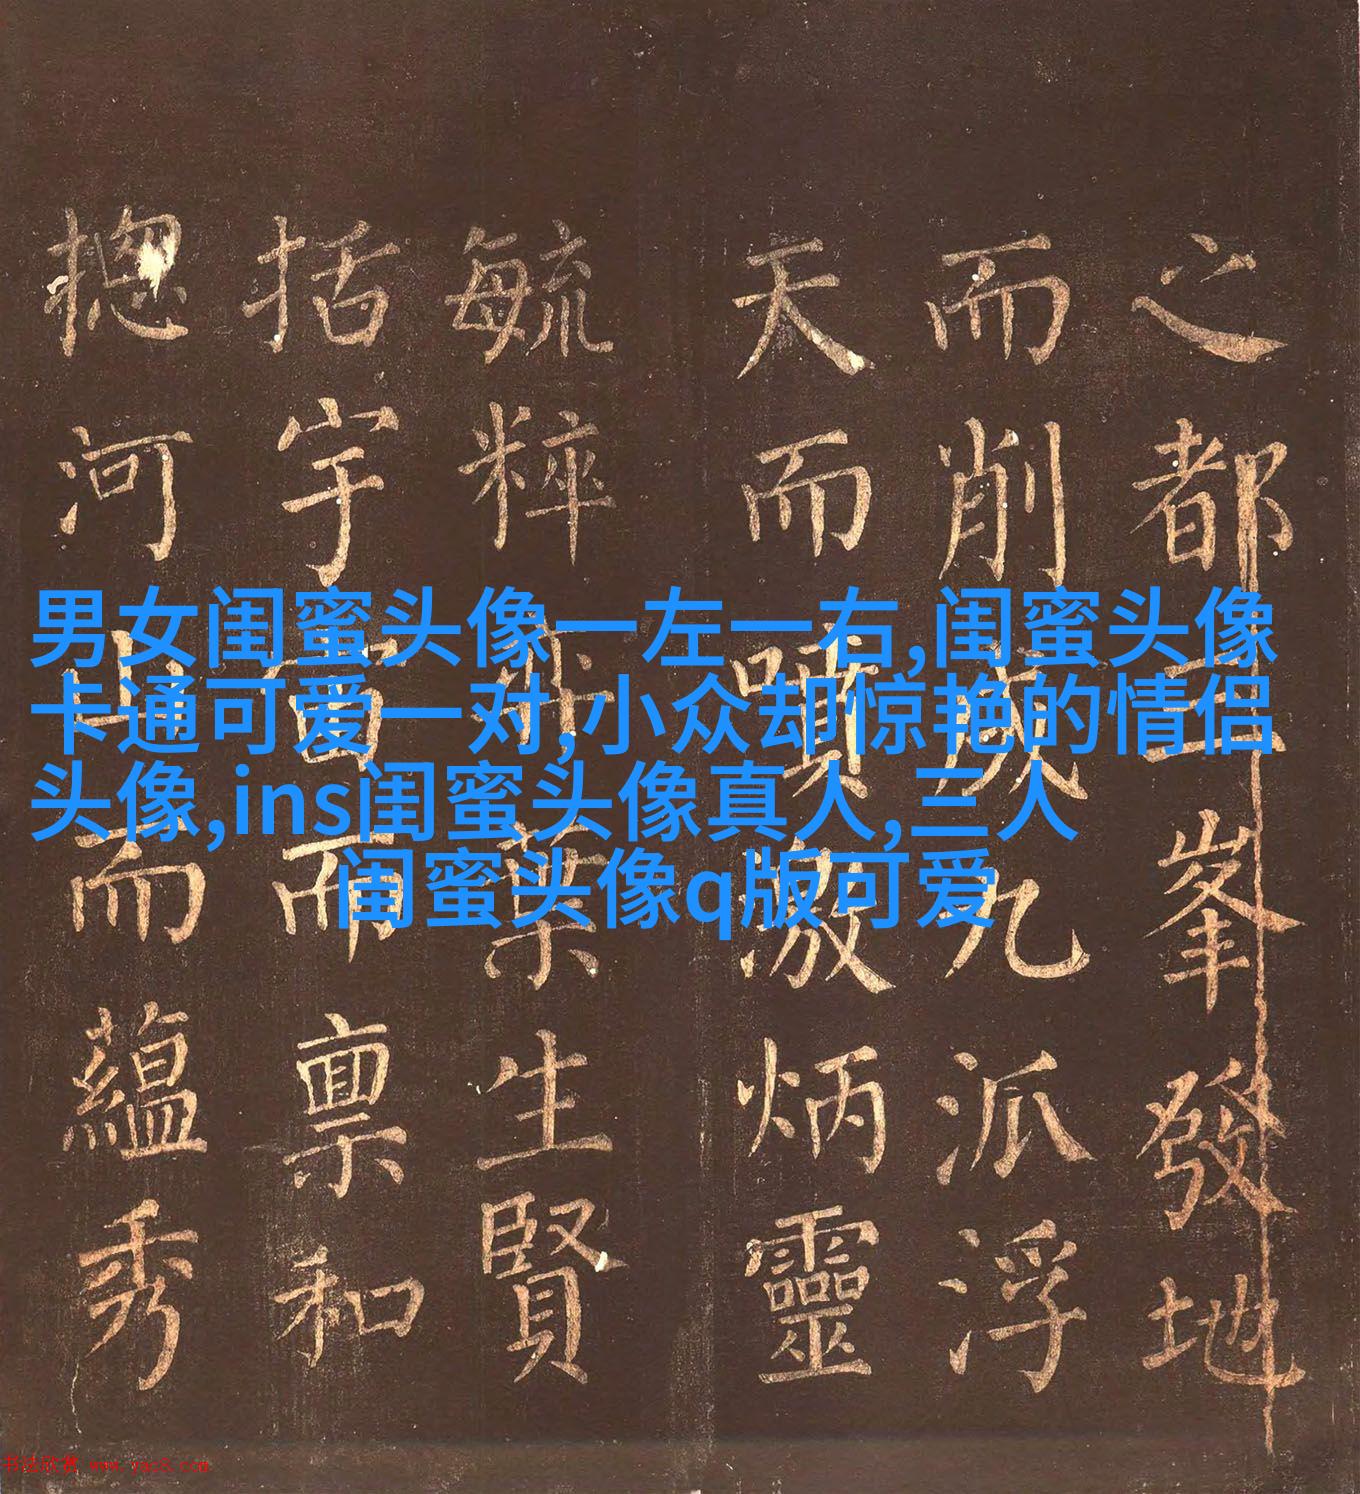 男女闺蜜头像一左一右,闺蜜头像
卡通可爱一对,小众却惊艳的情侣
头像,ins闺蜜头像真人,三人
闺蜜头像q版可爱
之都五峯發地
而削成九派浮
天而噴激炳靈
毓粹藥生賢
括宇宙而禀和
揔河山而蘊秀
书法欣赏 www.yac8.com